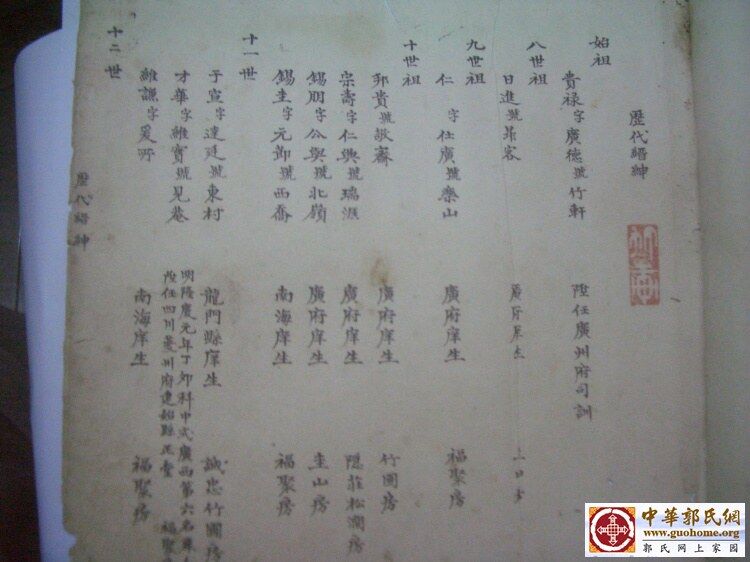 歷代縉紳
始祖
貴祿字廣德號竹軒 陞任廣州府司訓
八世祖
日進號 客
九世祖
仁 字任廣號樂山 廣府庠生 福聚房
十世祖
邦貴號敬齋 廣府庠生 竹園房
宗壽字仁興號瑞涯 廣府庠生 隱莊松澗房
錫朋字公與號北嶺 廣府庠生 圭山房
錫圭字元卸號西喬 南海庠生 福聚房
十一世
于宣字達廷號東村 龍門縣庠生 誠忠竹園房
才華字維寶號見菴 明隆慶元年丁卯科中式廣西第六名
陞任四川夔州府建始縣正堂 福聚
十二世
維謙字爰 南海庠生 福聚房
歷代縉紳
中華郭氏網
www.guohome.org
郭氏网上家园